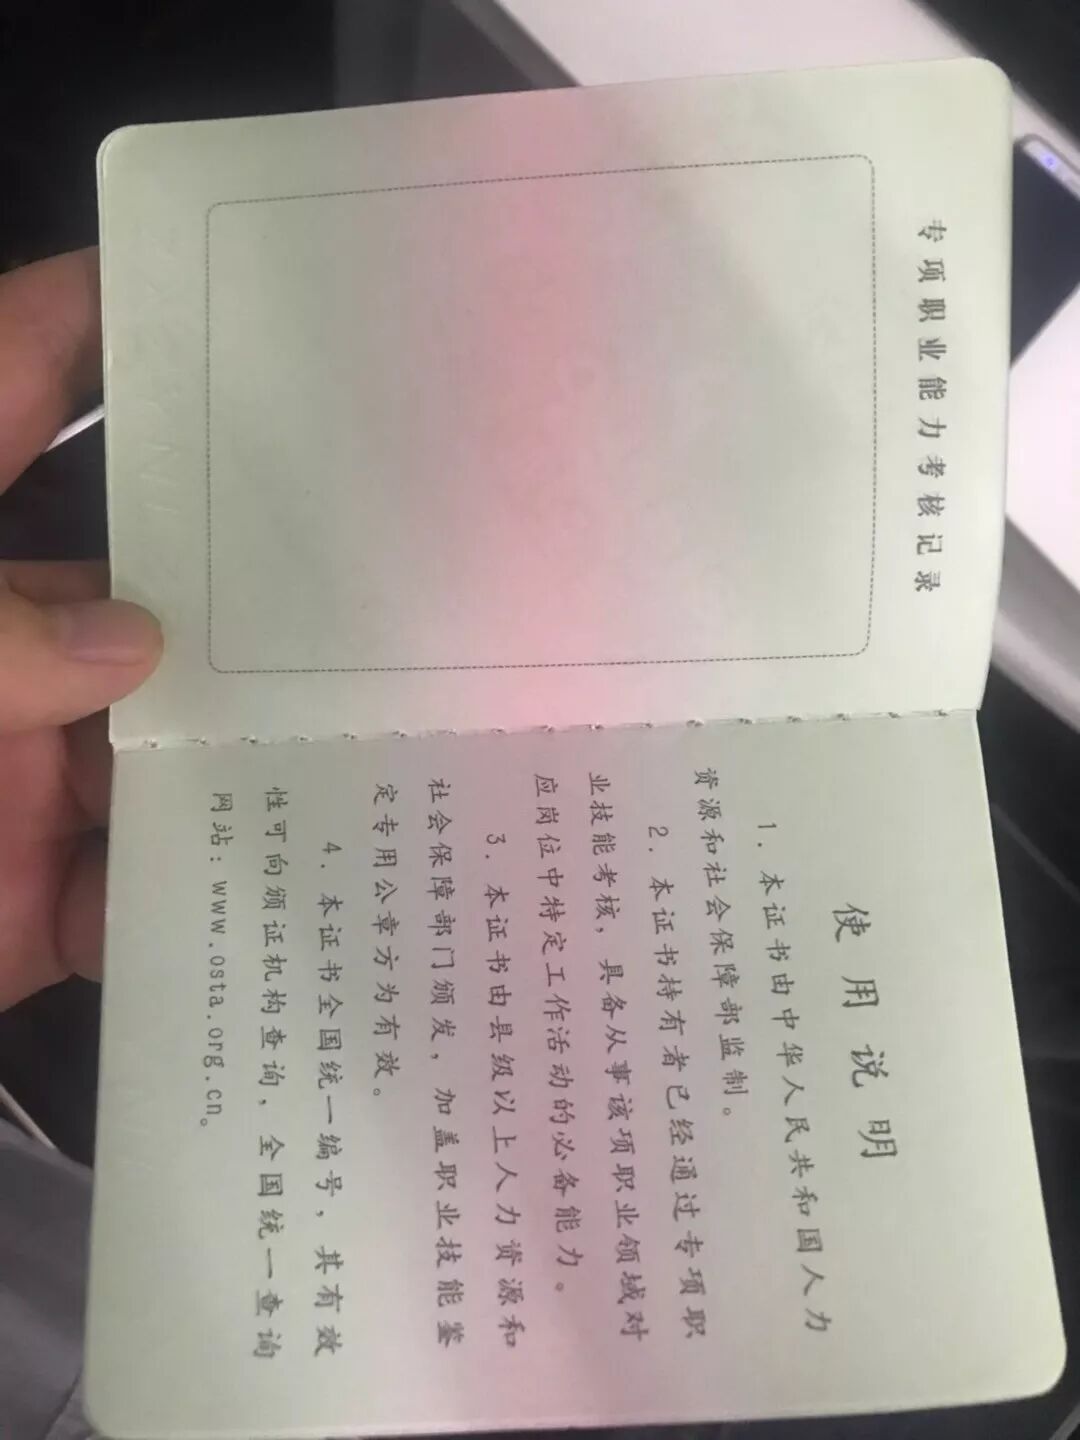 专项职业能力考核记录
使用说明
1. 本证书由中华人民共和国人力
资源和社会保障部监制。
2. 本证书持有者已经通过专项职
业技能考核，具备从事该项职业领域对
应岗位中特定工作活动的必备能力。
3. 本证书由县级以上人力资源和
社会保障部门颁发，加盖职业技能鉴
定专用公章方为有效。
4. 本证书全国统一编号，其有效
性可向颁证机构查询，全国统一查询
网站：www.osta.org.cn。